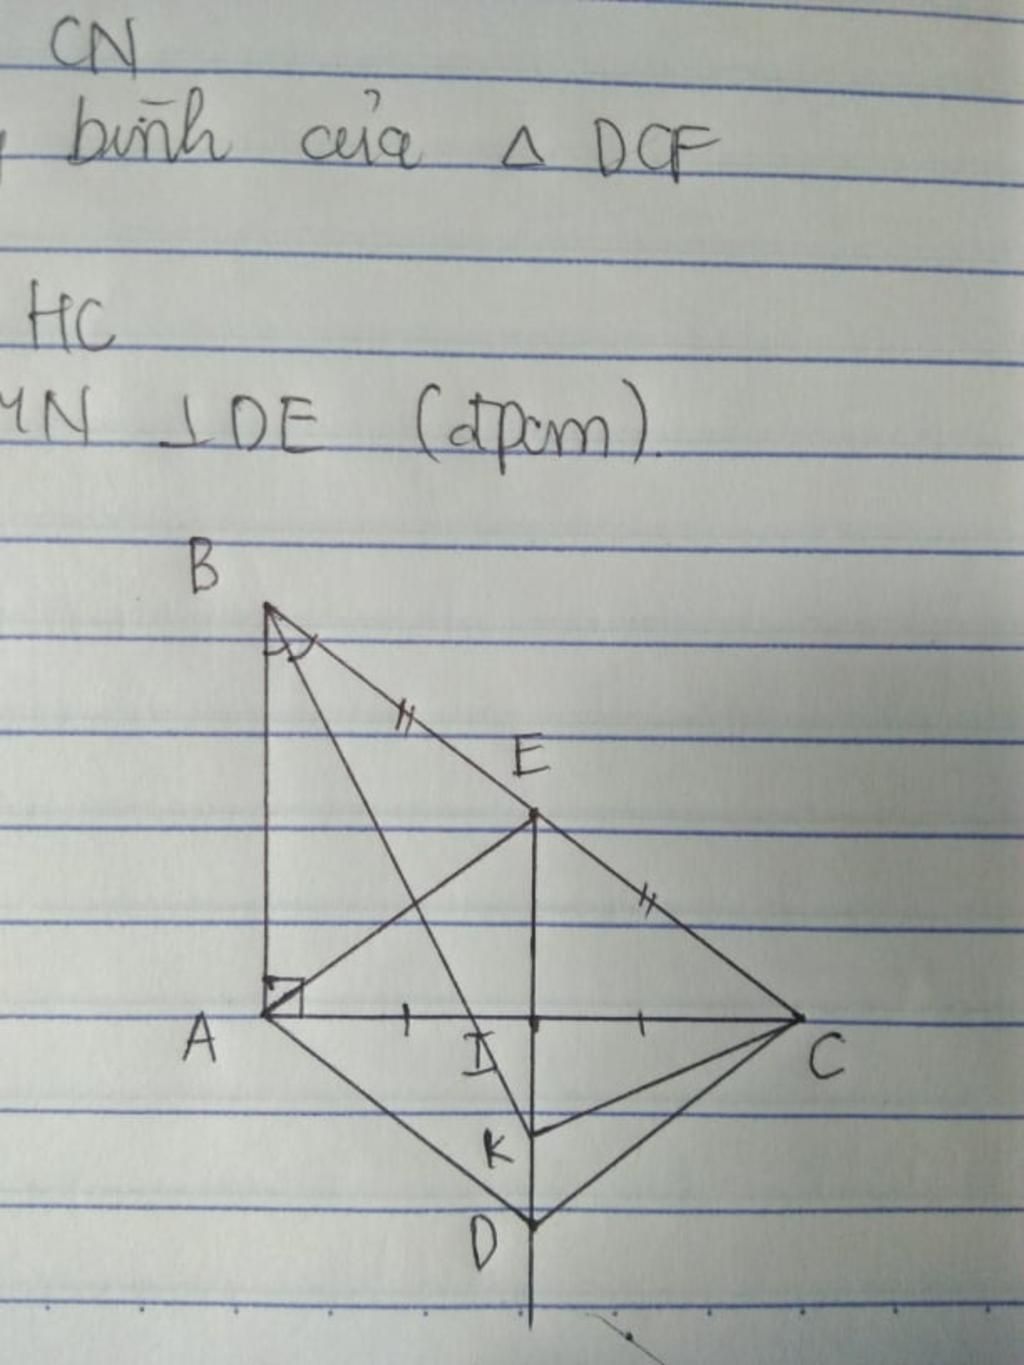 CN
bình của Δ DCF
HC
MN ⊥ DE (đpcm).
B
E
A
I
C
K
D